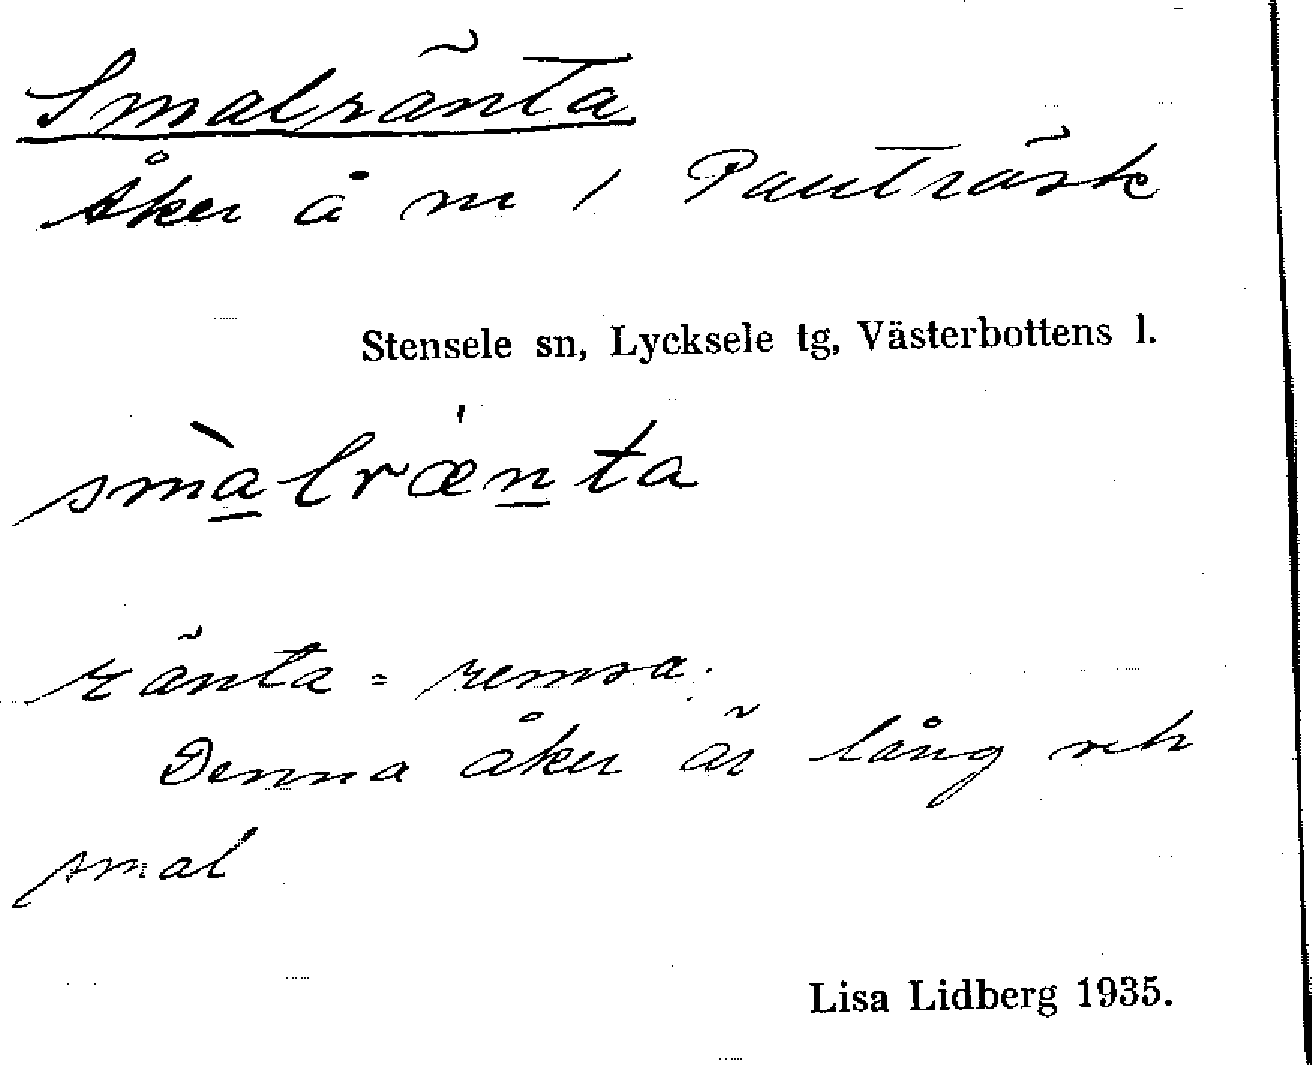 Smalränta
Åker å nr 1 Pauträsk
Stensele sn, Lycksele tg, Västerbottens l.
smàlrænta
ränta = remsa.
Denna åker är lång och
smal
Lisa Lidberg 1935.